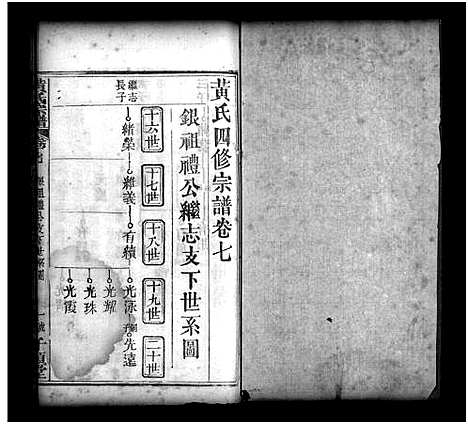 黃氏四修宗譜卷七
銀祖禮公繼志支下世系圖
十六世
十七世
十八世
十九世
二十世
繼志
長子
緒榮
維義
有績
光泳
先遠
光耀
光珠
光霞